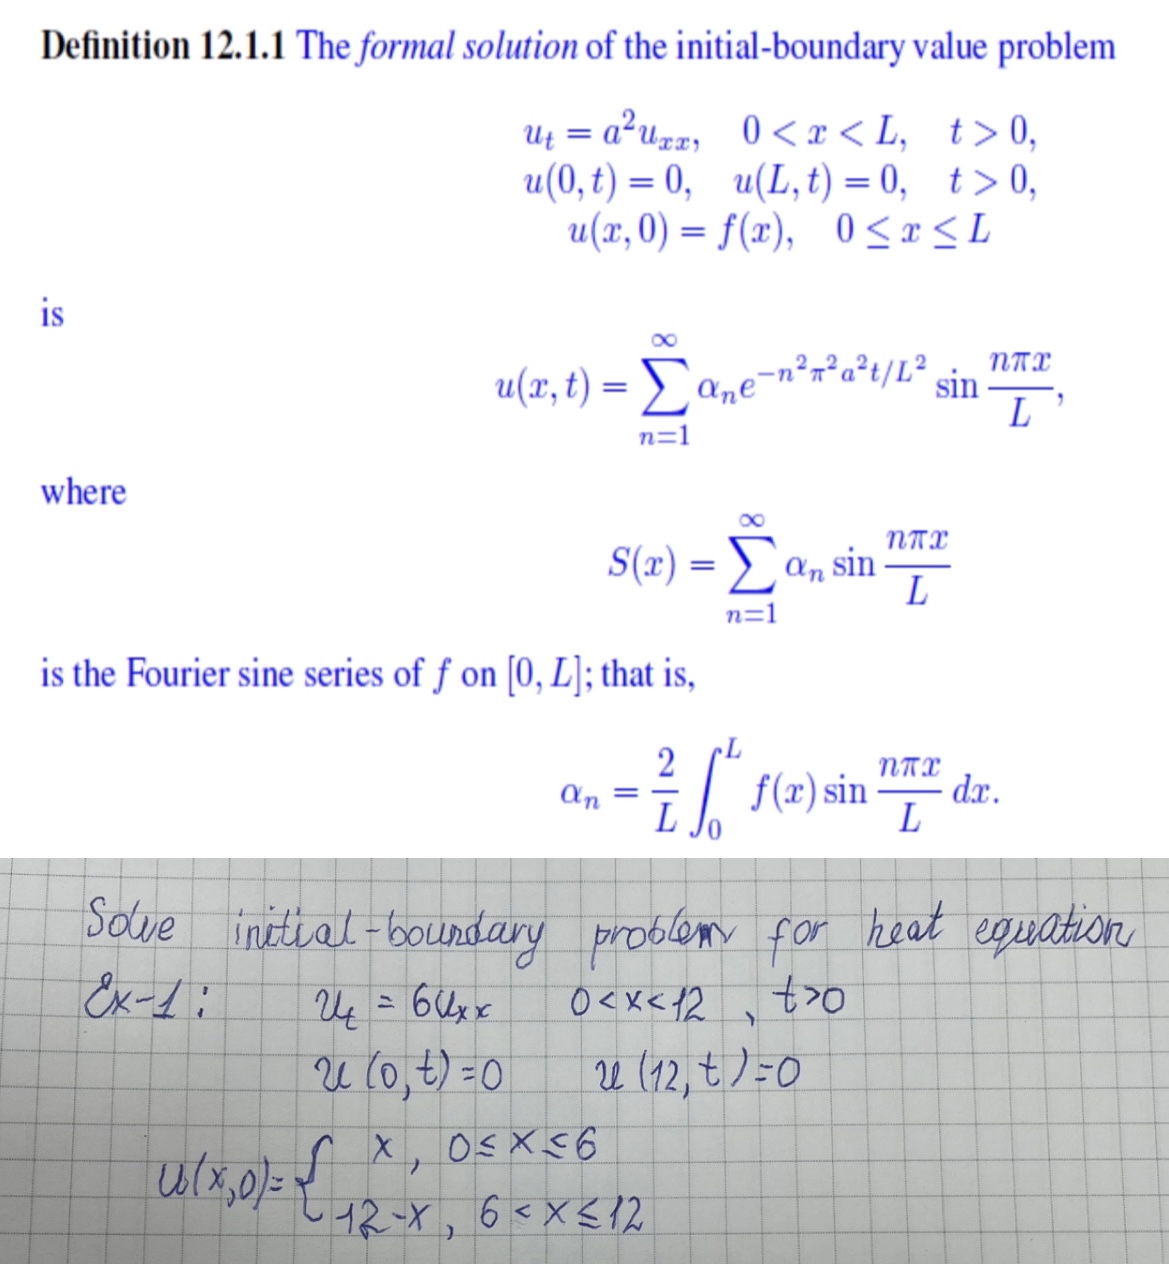 Definition 12.1.1 The formal solution of the initial-boundary value problem
u_t = a²u_xx, 0 < x < L, t > 0,
u(0, t) = 0, u(L, t) = 0, t > 0,
u(x, 0) = f(x), 0 ≤ x ≤ L
is
u(x, t) = ∑_{n=1}^{∞} α_n e^{−n²π²a²t/L²} sin \frac{nπx}{L},
where
S(x) = ∑_{n=1}^{∞} α_n sin \frac{nπx}{L}
is the Fourier sine series of f on [0, L]; that is,
α_n = \frac{2}{L} ∫_0^L f(x) sin \frac{nπx}{L} dx.
Solve initial-boundary problem for heat equation
Ex-1: u_t = 6u_xx 0<x<12, t>0
u(0,t)=0 u(12,t)=0
u(x,0)={ x, 0≤x≤6
12-x, 6<x≤12